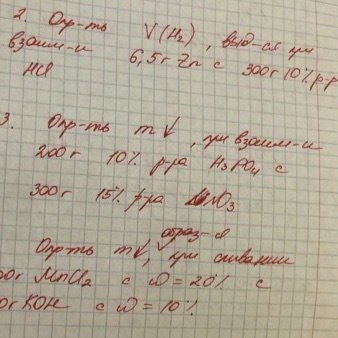 2. Опр-ть V(H₂), выд-ся при
взаим-и 6,5г Zn с 300г 10% р-р
HCl
3. Опр-ть m↓, при взаим-и
200г 10% р-ра H₃PO₄ с
300г 15% р-ра NO₃
образ-я
Опр-ть m↓, при сливании
00г MnCl₂ с ω=20% с
0г KOH с ω=10%.